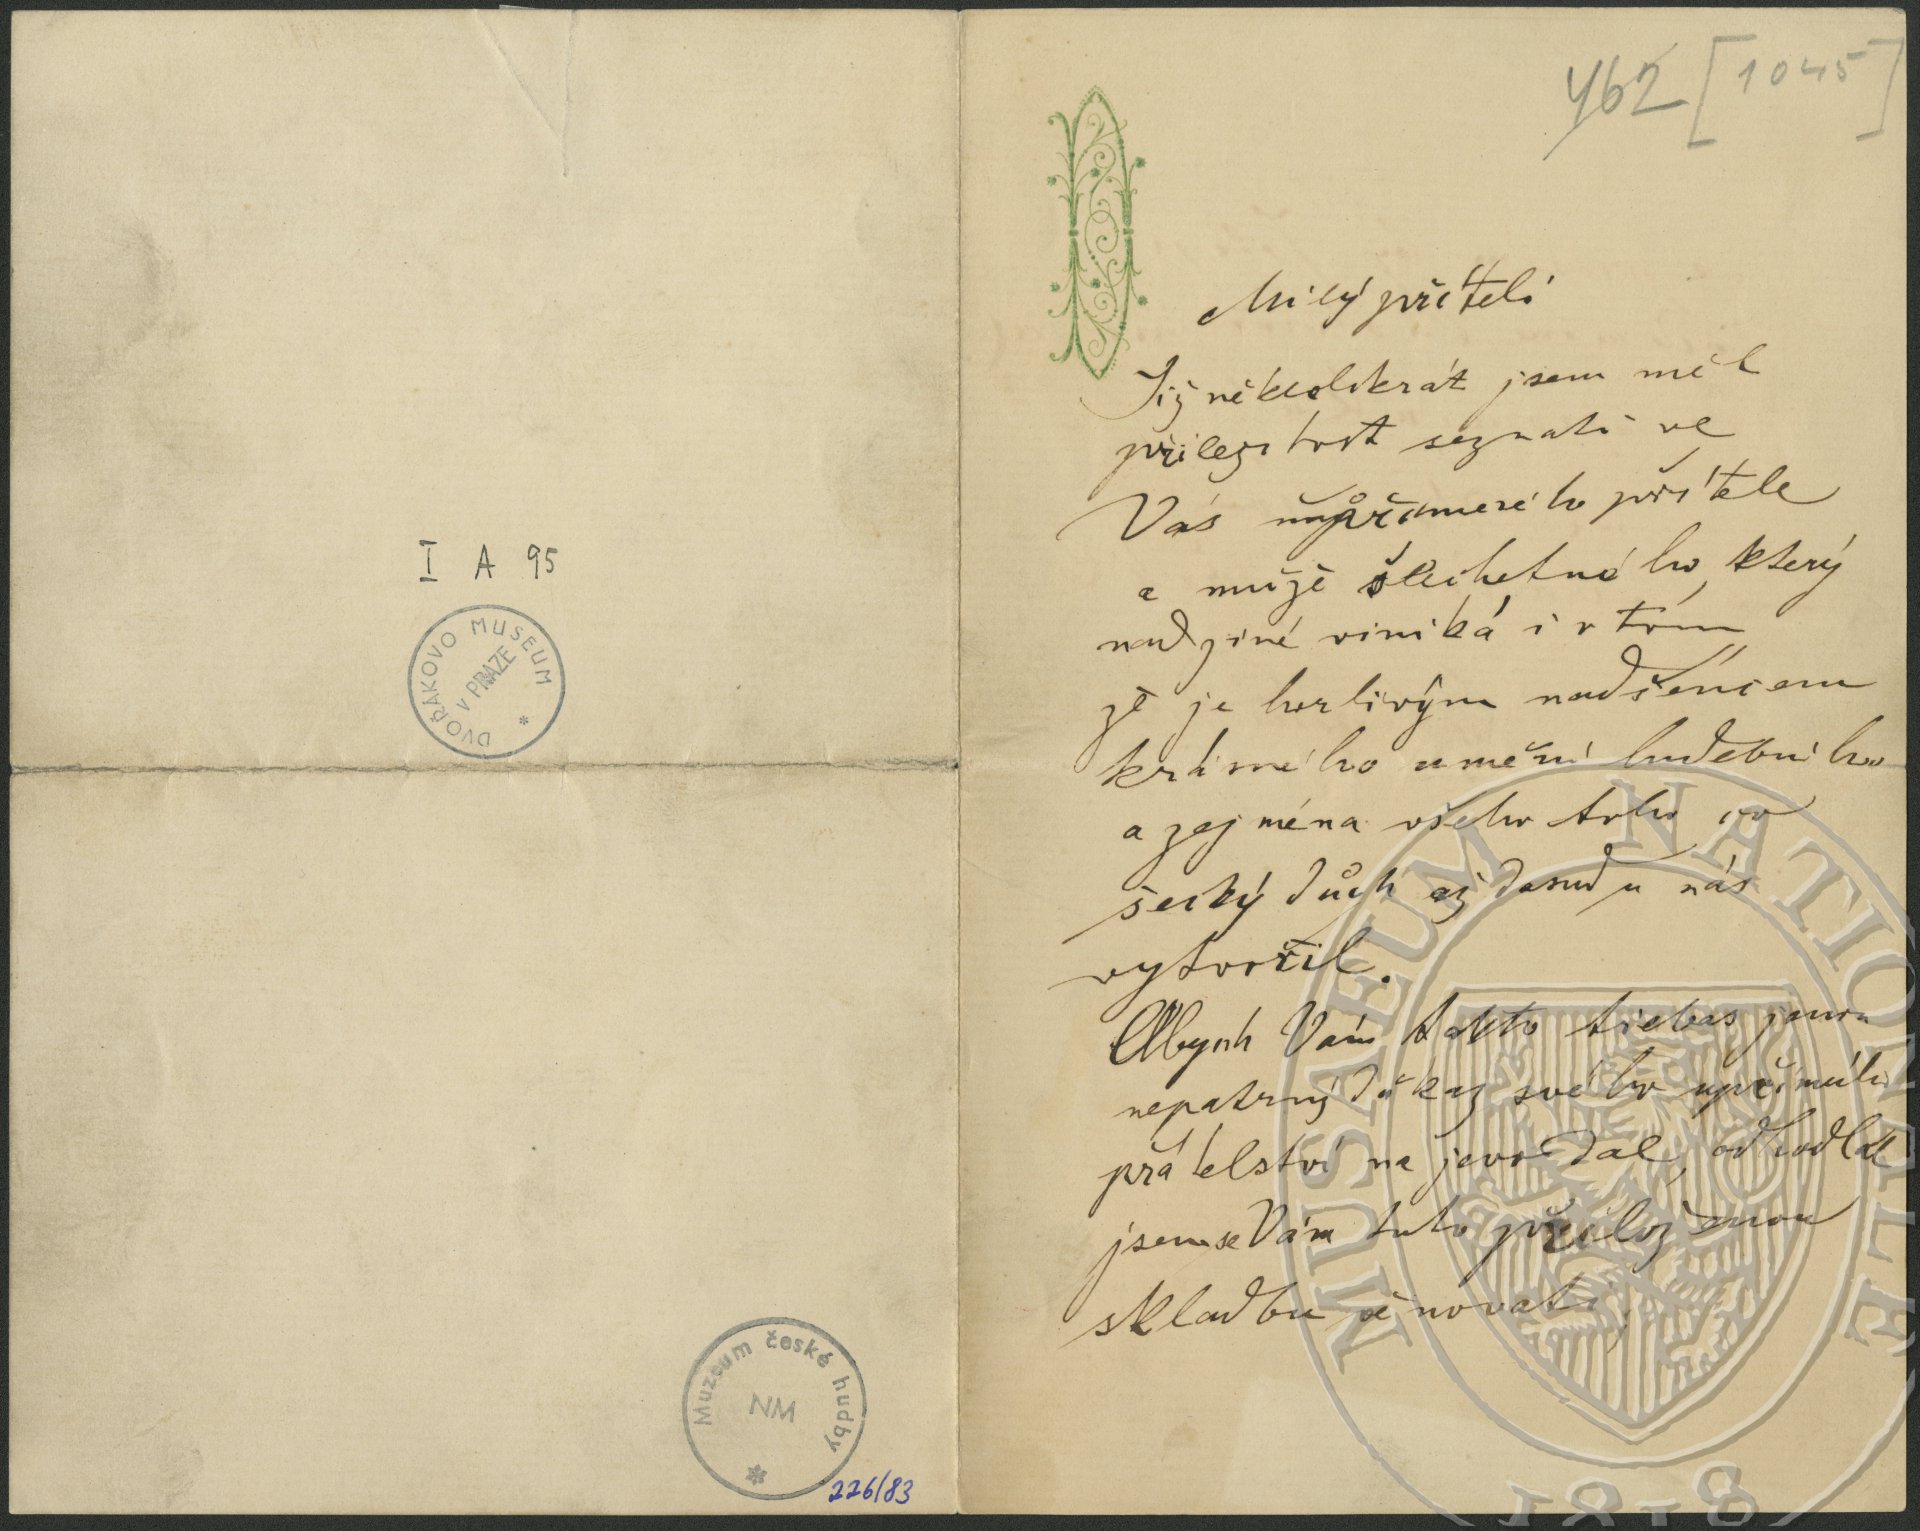 I A 95
DVOŘAKOVO MUSEUM
V PRAZE
Muzeum české hudby
NM
226/83
462 [1045]
Milý příteli
Již několikrát jsem měl
přiležitost seznati ve
Vás upřimného přítele
a muže šlechetného, který
nad jiné viniká i v tóm
že je horlivým nadšéncem
krásného umění hudebního
a zejména všeho toho co
český důch až dosud u nás
vytvořil.
Abych Vám takto třebas jenom
nepatrný důkaz svého upřimného
přátelství na jevo dal, odhodlal
jsem se Vám tuto přiloženou
skladbu věnovati,
MUSAEUM NATIONALE
1818